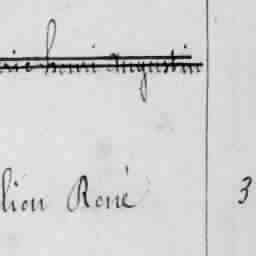 rie henri Augustin
lion René 3